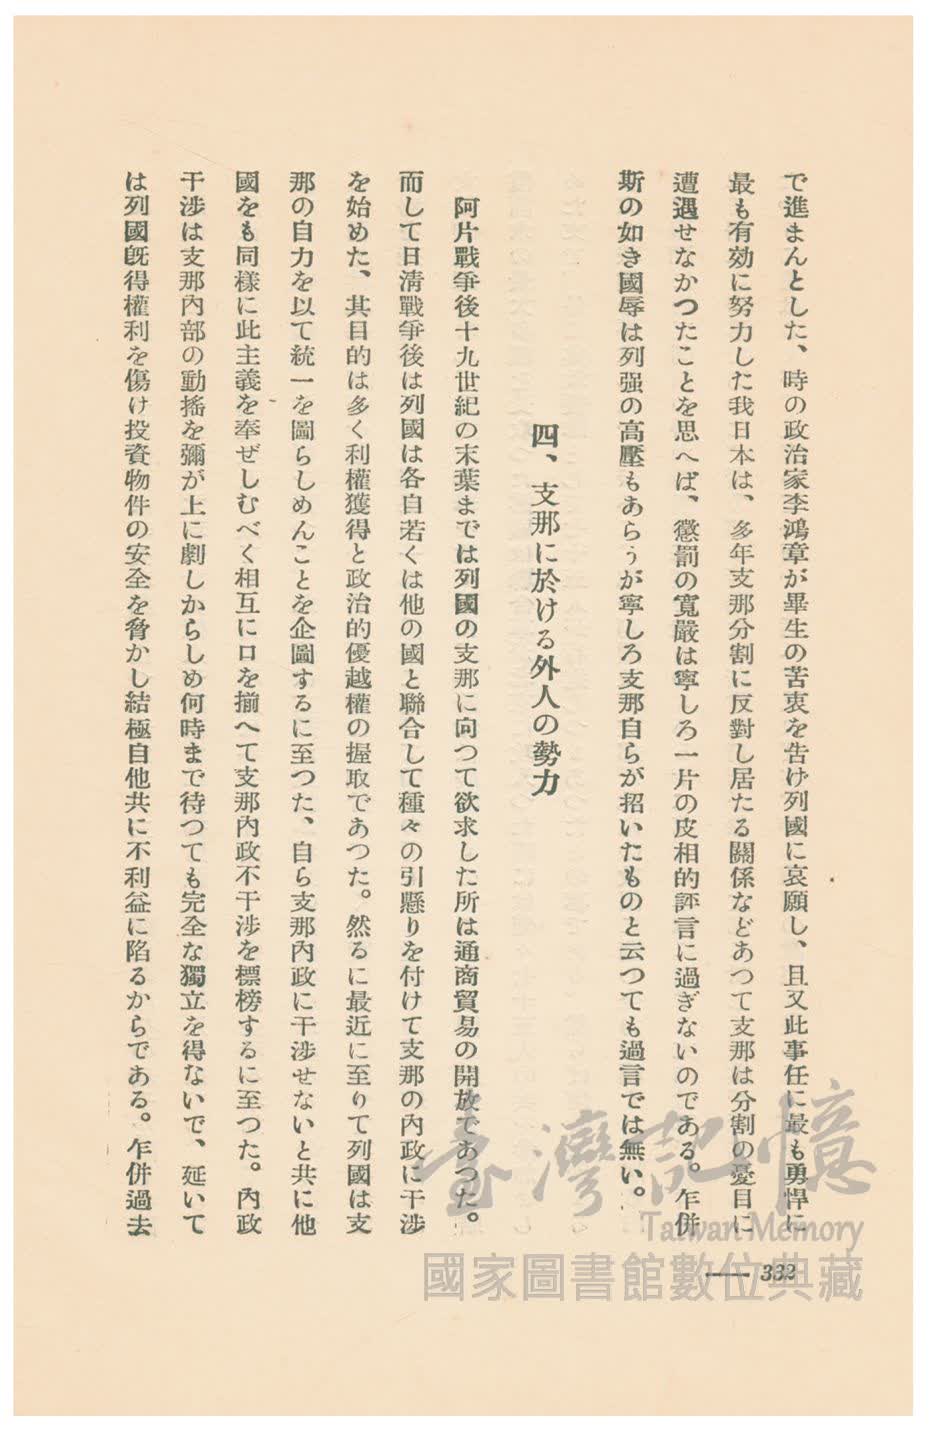 で進まんとした、時の政治家李鴻章が畢生の苦衷を告げ列國に哀願し、且又此事任に最も勇悍に
最も有効に努力した我日本は、多年支那分割に反對し居たる關係などあつて支那は分割の憂目に
遭遇せなかつたことを思へば、懲罰の寬嚴は寧しろ一片の皮相的評言に過ぎないのである。乍併
斯の如き國辱は列强の高壓もあらうが寧しろ支那自らが招いたものと云つても過言では無い。
四、支那に於ける外人の勢力
阿片戰爭後十九世紀の末葉までは列國の支那に向つて欲求した所は通商貿易の開放であつた。
而して日清戰爭後は列國は各自若くは他の國と聯合して種々の引懸りを付けて支那の內政に干涉
を始めた、其目的は多く利權獲得と政治的優越權の握取であつた。然るに最近に至りて列國は支
那の自力を以て統一を圖らしめんことを企圖するに至つた、自ら支那內政に干涉せないと共に他
國をも同樣に此主義を奉ぜしむべく相互に口を揃へて支那內政不干涉を標榜するに至つた。內政
干涉は支那內部の動搖を彌が上に劇しからしめ何時まで待つても完全な獨立を得ないで、延いて
は列國旣得權利を傷け投資物件の安全を脅かし結極自他共に不利益に陷るからである。乍併過去
332
臺灣記憶
Taiwan Memory
國家圖書館數位典藏